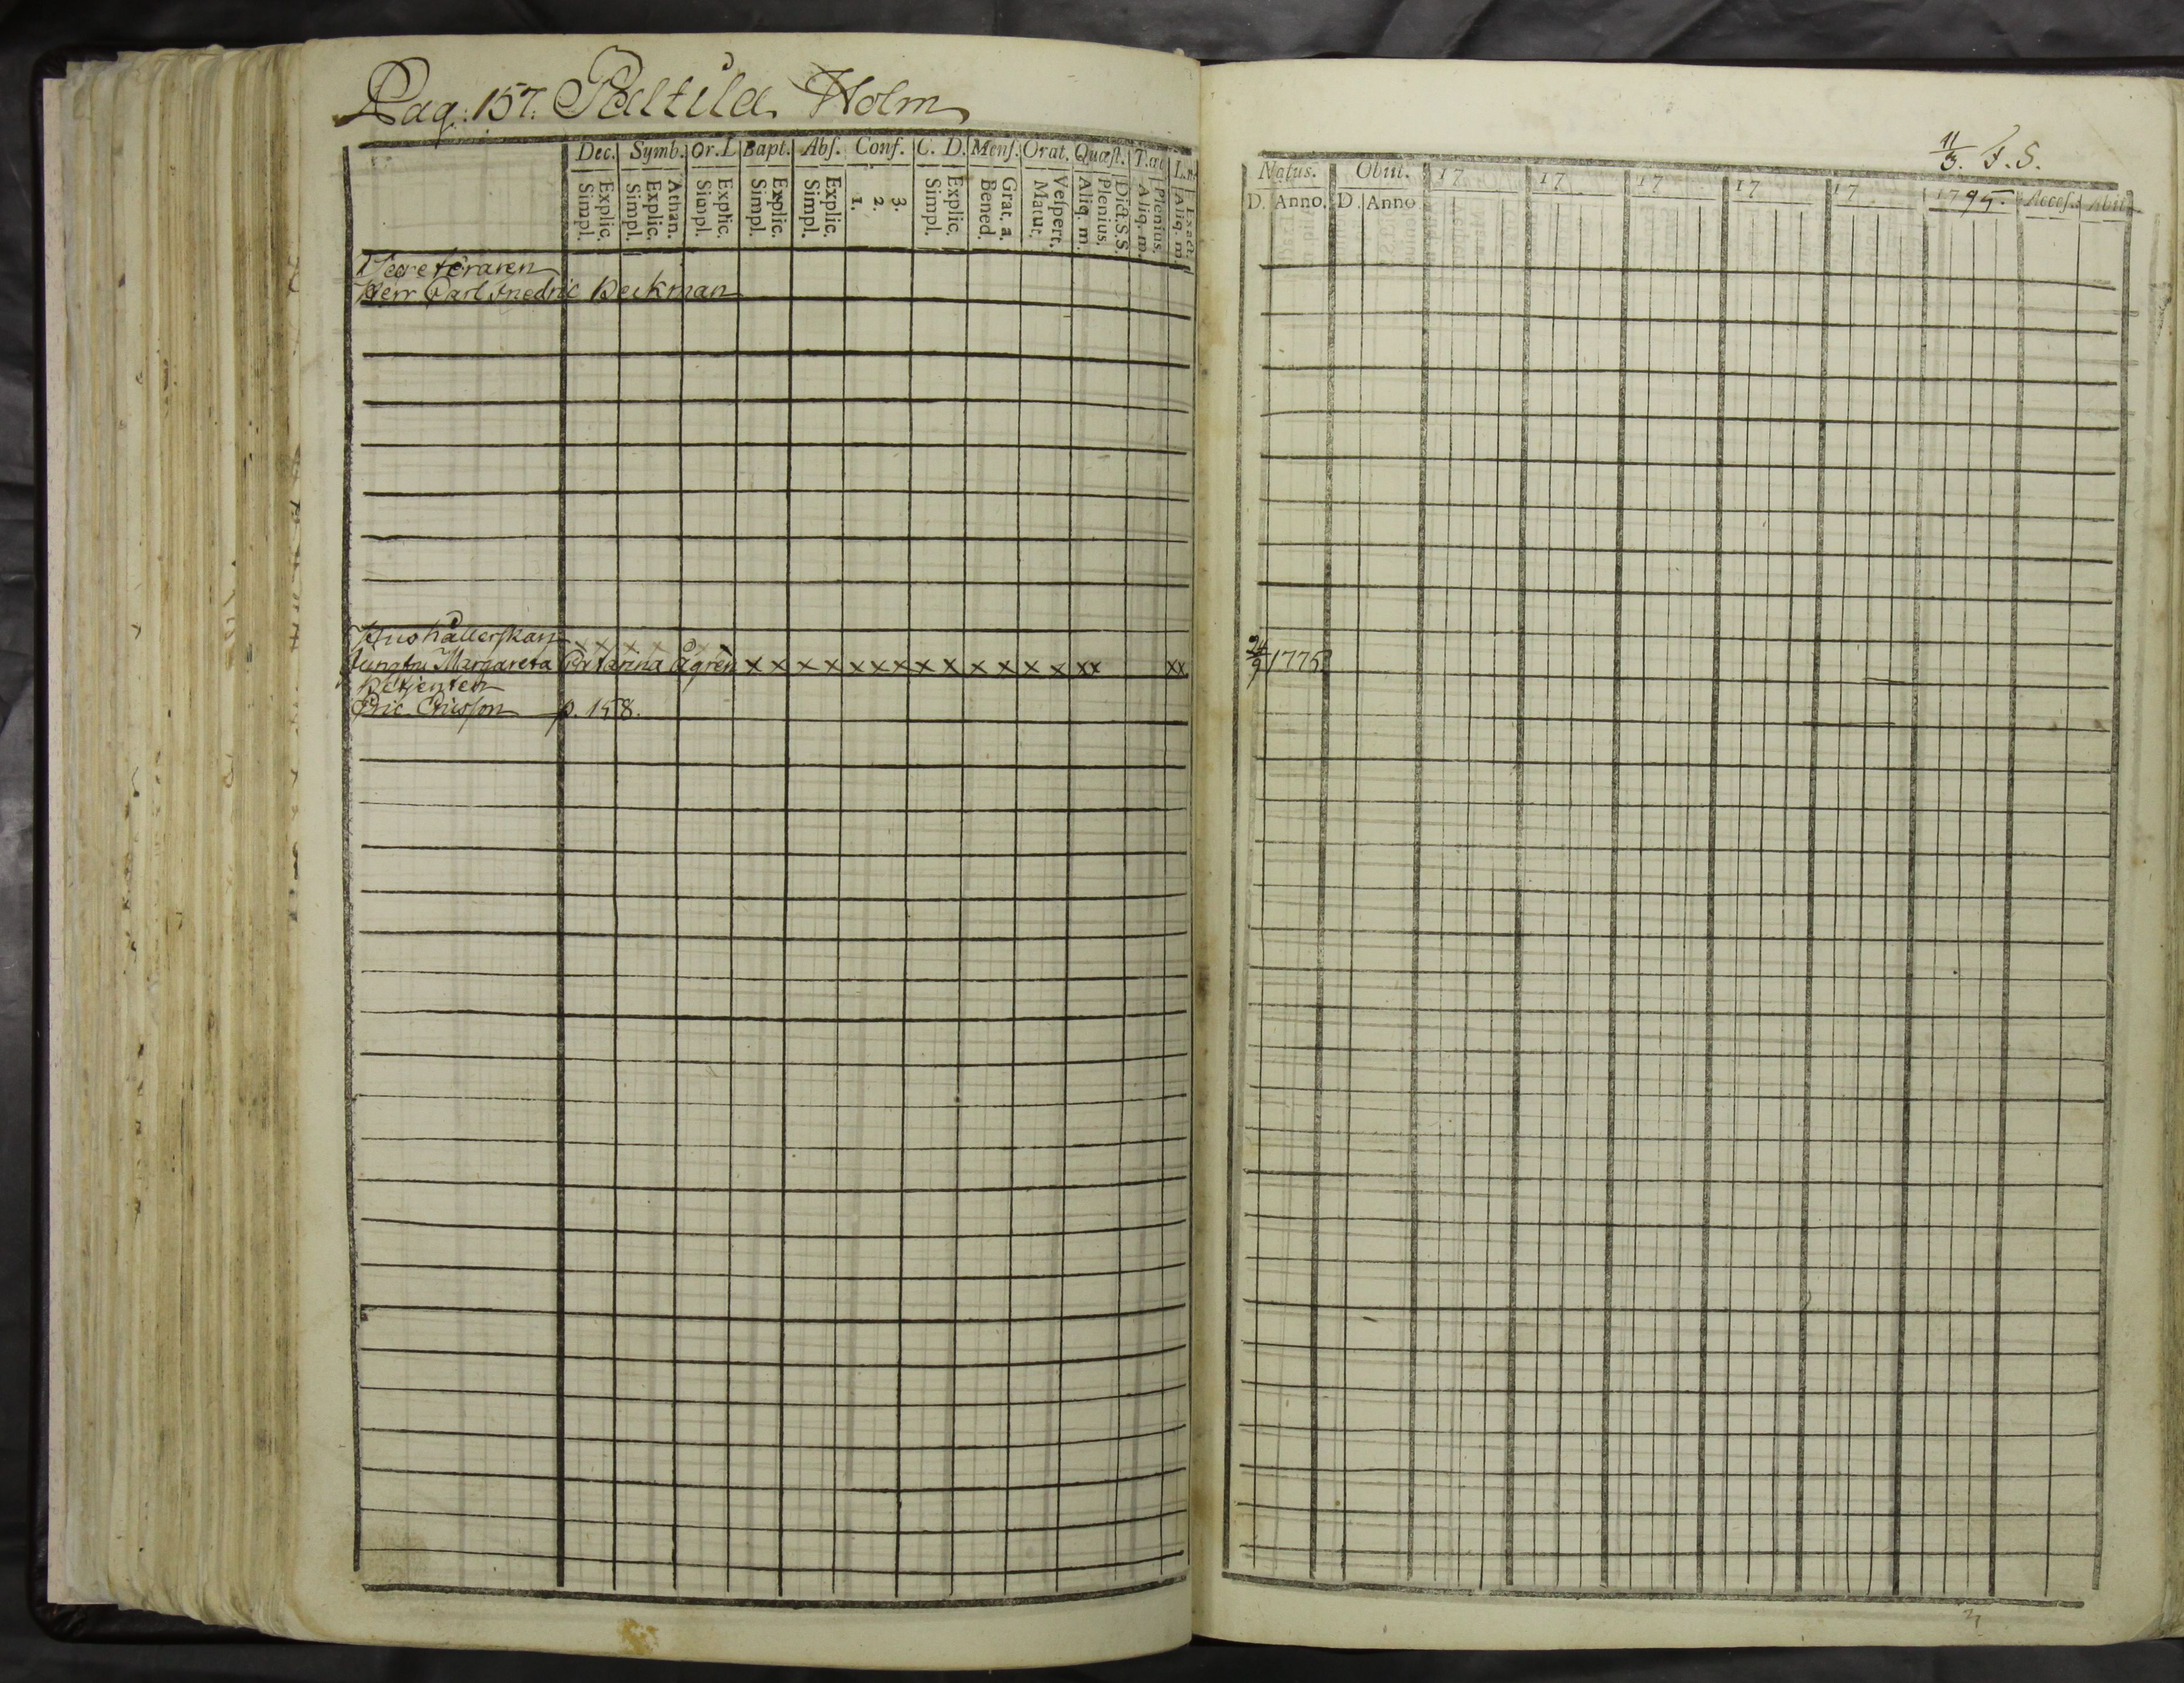 Pag: 157. Peltila Holm
Dec. Symb. Or. D. Bapt. Abs. Conf. C. D. Mens. Orat. Quæst. T. æ L.
Simpl. Explic. Simpl. Explic. Athan. Simpl. Explic. Simpl. Explic. Simpl. Explic. 1. 2. 3. Simpl. Explic. Bened. Grat. a. Matut. Vespert. Aliq. m. Plenius. Dict. S. S. Aliq. m. Plenius. Aliq. m. Exact.
Secreteraren
Herr Carl Fredric Beckman
Hushållerskan x x x x x x x
Jungfru Margareta Catarina Ågren x x x x x x x x x x x x x x x x xx
Betjenten
Eric Ericsson p. 158.
11/3. F. S.
Natus. Obiit. 17 17 17 17 17 1795. Access. Abit.
D. Anno. D. Anno
24/9 1775